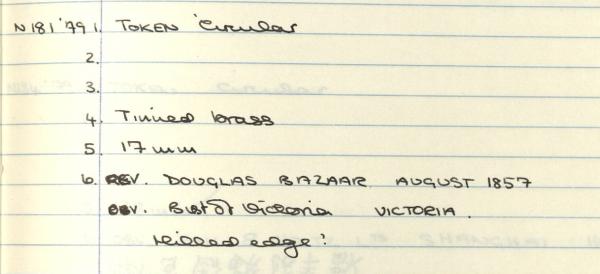 N181 '79 1. TOKEN Circular
2.
3.
4. Tinned brass
5. 17mm
6. REV. DOUGLAS BAZAAR AUGUST 1857
OBV. Bust of Victoria VICTORIA.
Milled edge?